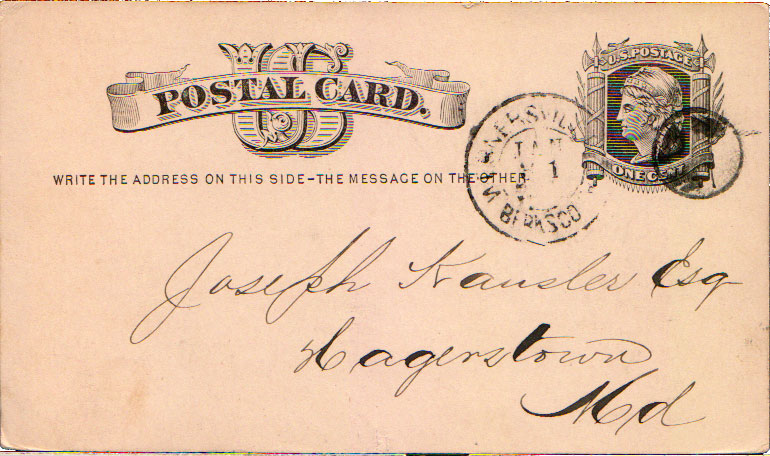 US
POSTAL CARD.
U.S. POSTAGE
ONE CENT
WRITE THE ADDRESS ON THIS SIDE-THE MESSAGE ON THE OTHER
JAN
1
BERKS CO
Joseph Kausler Esq
Hagerstown
Md